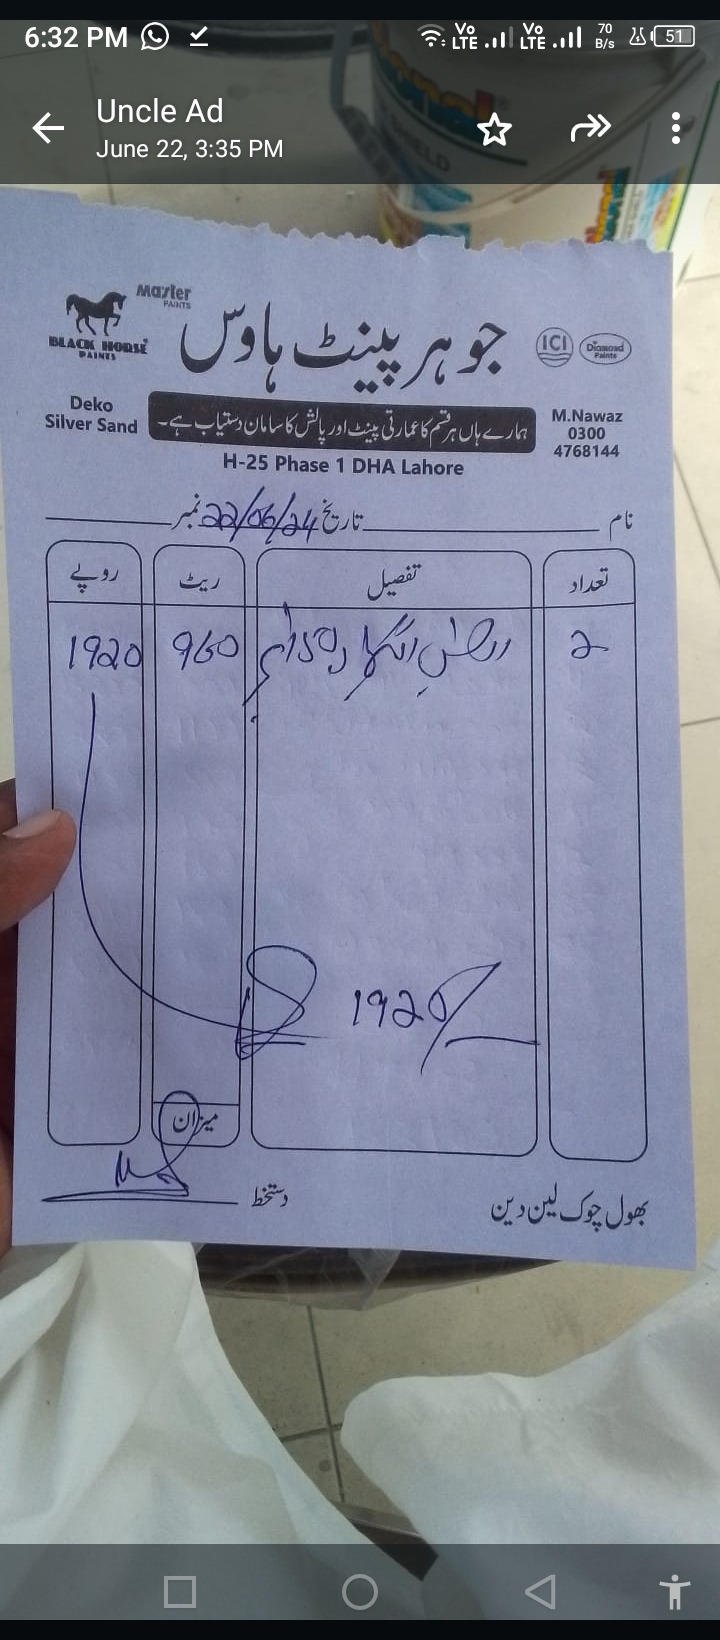 6:32 PM
Vo LTE Vo LTE 70 B/s 51
Uncle Ad
June 22, 3:35 PM
Master PAINTS
BLACK HORSE PAINTS
جوہر پینٹ ہاوس
ICI
Diamond Paints
Deko
Silver Sand
ہمارے ہاں ہر قسم کا عمارتی پینٹ اور پالش کا سامان دستیاب ہے۔
M.Nawaz
0300
4768144
H-25 Phase 1 DHA Lahore
نام تاریخ 22/06/24 نمبر
تعداد تفصیل ریٹ روپے
2 960 1920
1920/
میزان
دستخط
بھول چوک لین دین